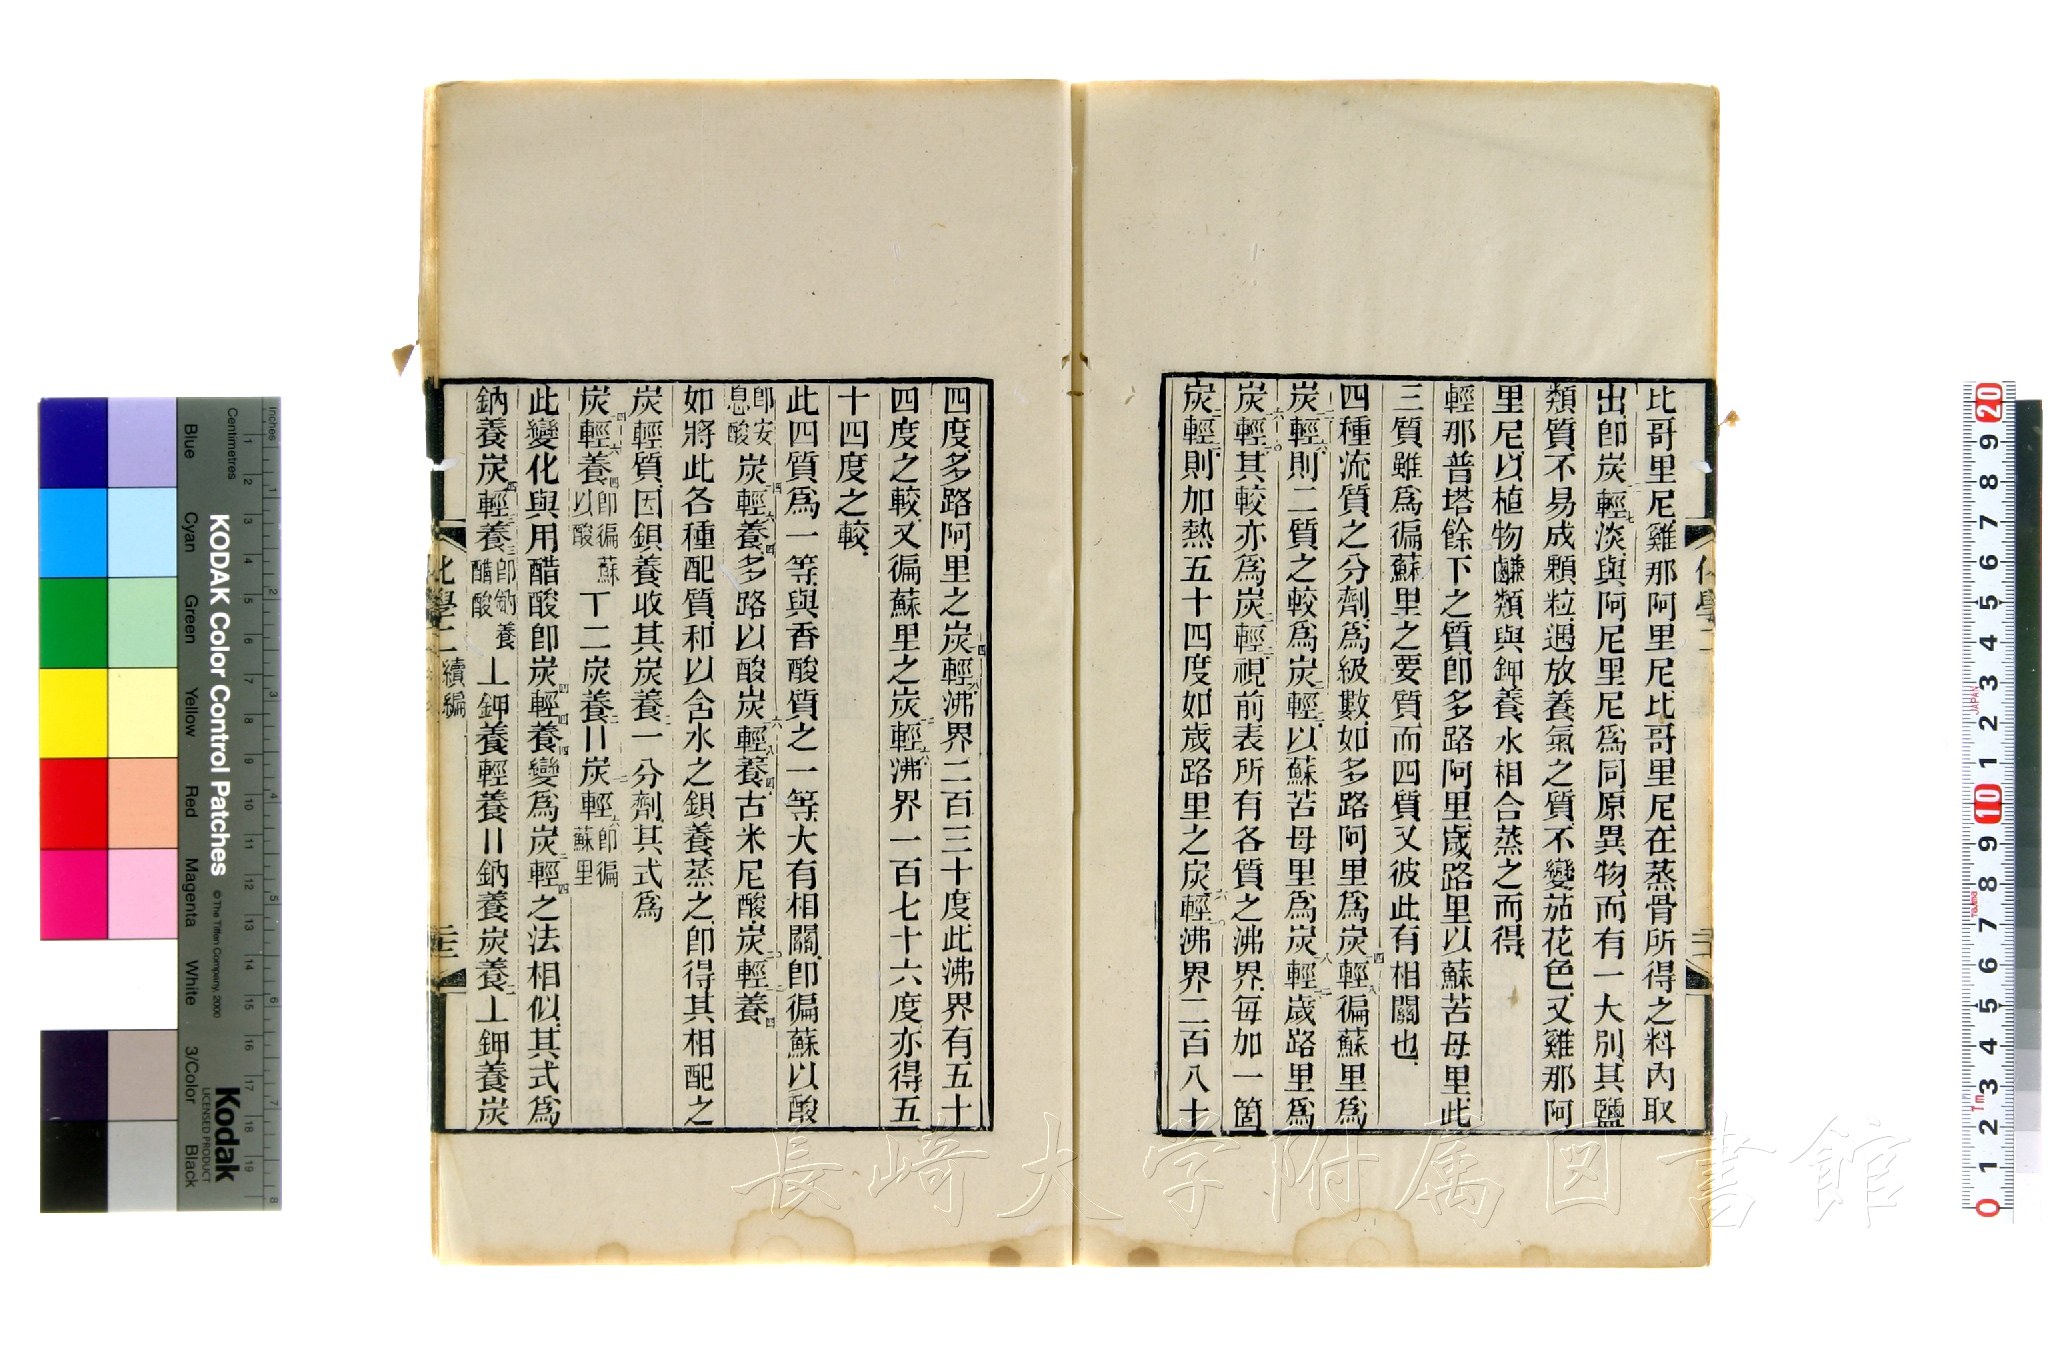 比哥里尼雞那阿里尼比哥里尼在蒸骨所得之料內取
出卽炭輕淡與阿尼里尼爲同原異物而有一大別其鹽
類質不易成顆粒遇放養氣之質不變茄花色又雞那阿
里尼以植物鹻類與鉀養水相合蒸之而得
輕那普塔餘下之質卽多路阿里歲路里以蘇苦母里此
三質雖爲徧蘇里之要質而四質又彼此有相關也
四種流質之分劑爲級數如多路阿里爲炭輕徧蘇里爲
炭輕則二質之較爲炭輕以蘇苦母里爲炭輕歲路里爲
炭輕其較亦爲炭輕視前表所有各質之沸界每加一箇
炭輕則加熱五十四度如歲路里之炭輕沸界二百八十
四度多路阿里之炭輕沸界二百三十度此沸界有五十
四度之較又徧蘇里之炭輕沸界一百七十六度亦得五
十四度之較
此四質爲一等與香酸質之一等大有相關卽徧蘇以酸
卽安息酸炭輕養多路以酸炭輕養古米尼酸炭輕養
如將此各種配質和以含水之鋇養蒸之卽得其相配之
炭輕質因鋇養收其炭養一分劑其式爲
炭輕養卽徧蘇以酸丅二炭養〢炭輕卽徧蘇里
此變化與用醋酸卽炭輕養變爲炭輕之法相似其式爲
鈉養炭輕養卽鈉養醋酸丄鉀養輕養〢鈉養炭養丄鉀養炭
化學二 續編
KODAK Color Control Patches
© The Tiffen Company, 2000
Kodak
LICENSED PRODUCT
Inches
Centimetres
Blue
Cyan
Green
Yellow
Red
Magenta
White
3/Color
Black
長崎大学附属図書館
JAPAN